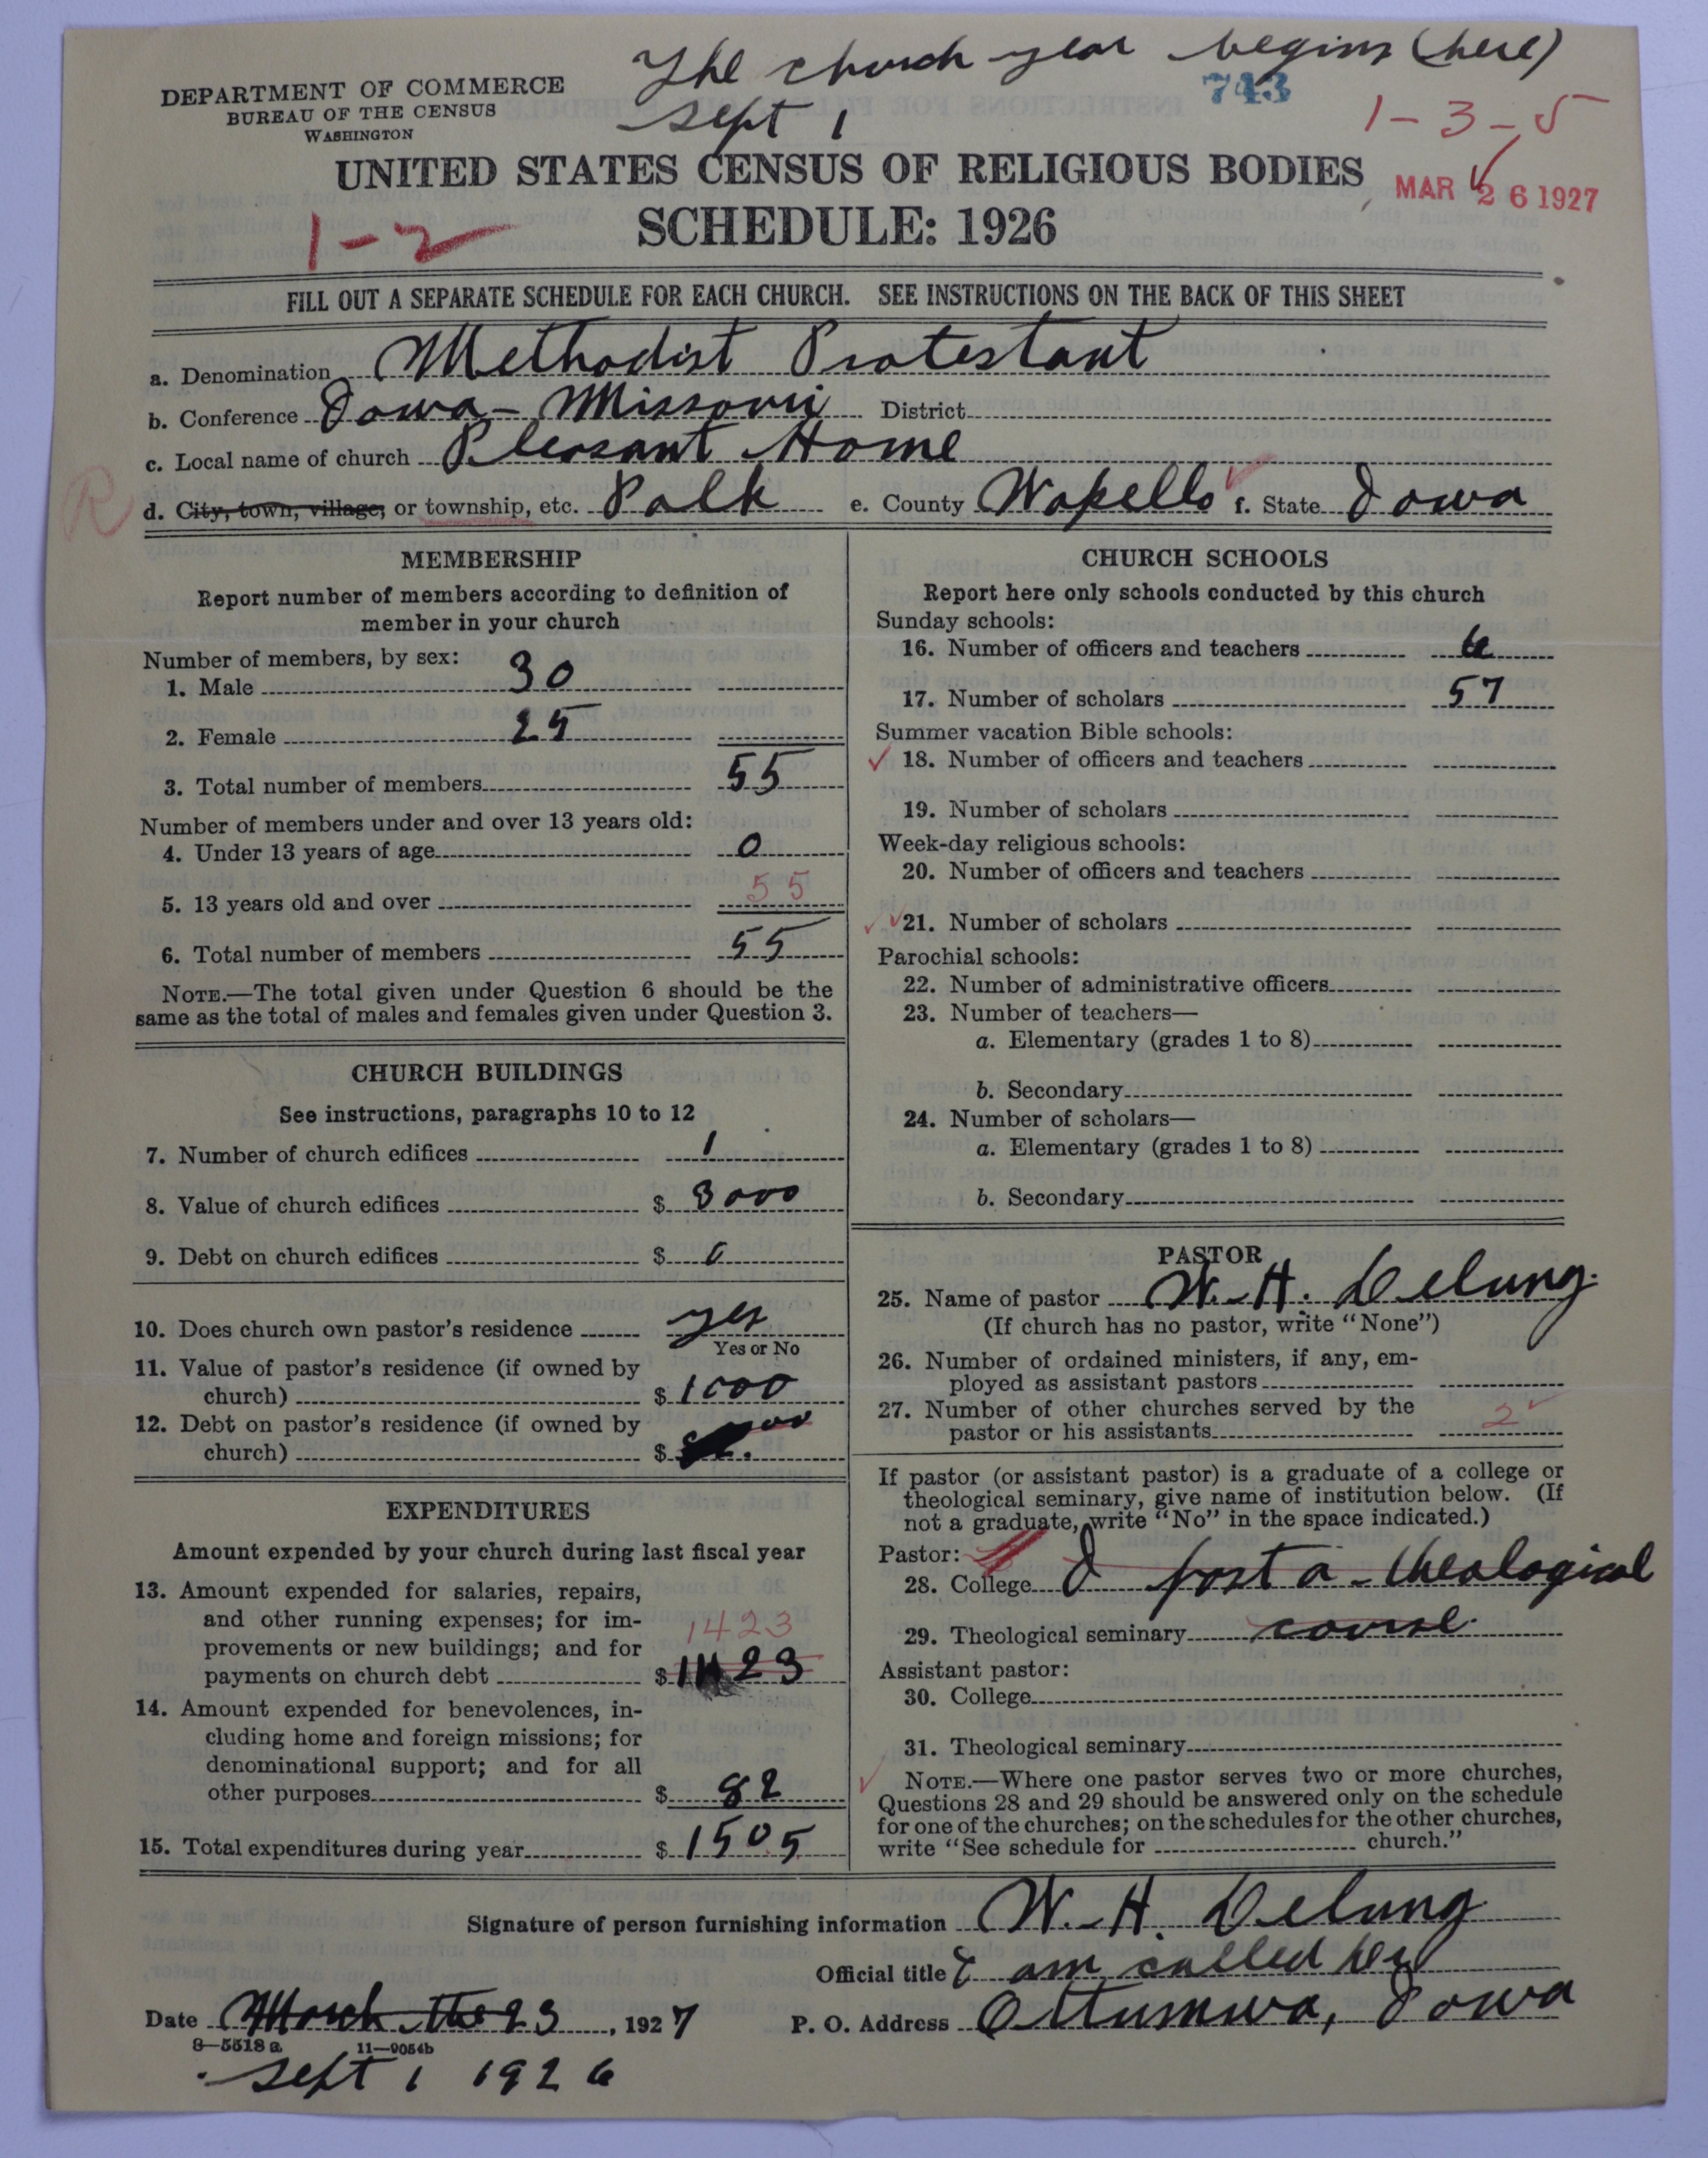 The church year begins (here)
Sept 1
743
DEPARTMENT OF COMMERCE
BUREAU OF THE CENSUS
WASHINGTON
1-3-5
UNITED STATES CENSUS OF RELIGIOUS BODIES
MAR 26 1927
SCHEDULE: 1926
1-2
FILL OUT A SEPARATE SCHEDULE FOR EACH CHURCH. SEE INSTRUCTIONS ON THE BACK OF THIS SHEET
a. Denomination Methodist Protestant
b. Conference Iowa-Missouri District
c. Local name of church Pleasant Home
R
d. City, town, village, or township, etc. Polk e. County Wapello f. State Iowa
MEMBERSHIP
Report number of members according to definition of
member in your church
Number of members, by sex:
1. Male 30
2. Female 25
3. Total number of members 55
Number of members under and over 13 years old:
4. Under 13 years of age 0
5. 13 years old and over 55
6. Total number of members 55
NOTE.—The total given under Question 6 should be the
same as the total of males and females given under Question 3.
CHURCH BUILDINGS
See instructions, paragraphs 10 to 12
7. Number of church edifices 1
8. Value of church edifices $ 3000
9. Debt on church edifices $ 0
10. Does church own pastor's residence yes
Yes or No
11. Value of pastor's residence (if owned by
church) $ 1000
12. Debt on pastor's residence (if owned by
church) $
EXPENDITURES
Amount expended by your church during last fiscal year
13. Amount expended for salaries, repairs,
and other running expenses; for im-
provements or new buildings; and for 1423
payments on church debt $ 1423
14. Amount expended for benevolences, in-
cluding home and foreign missions; for
denominational support; and for all
other purposes $ 82
15. Total expenditures during year $ 1505
CHURCH SCHOOLS
Report here only schools conducted by this church
Sunday schools:
16. Number of officers and teachers 6
17. Number of scholars 57
Summer vacation Bible schools:
18. Number of officers and teachers
19. Number of scholars
Week-day religious schools:
20. Number of officers and teachers
21. Number of scholars
Parochial schools:
22. Number of administrative officers
23. Number of teachers—
a. Elementary (grades 1 to 8)
b. Secondary
24. Number of scholars—
a. Elementary (grades 1 to 8)
b. Secondary
PASTOR
25. Name of pastor W. H. Delung
(If church has no pastor, write "None")
26. Number of ordained ministers, if any, em-
ployed as assistant pastors
27. Number of other churches served by the
pastor or his assistants 2
If pastor (or assistant pastor) is a graduate of a college or
theological seminary, give name of institution below. (If
not a graduate, write "No" in the space indicated.)
Pastor:
28. College I post a-theological
29. Theological seminary course
Assistant pastor:
30. College
31. Theological seminary
NOTE.—Where one pastor serves two or more churches,
Questions 28 and 29 should be answered only on the schedule
for one of the churches; on the schedules for the other churches,
write "See schedule for church."
Signature of person furnishing information W. H. Delung
Official title I am called Rev
Date March the 23, 1927 P. O. Address Ottumwa, Iowa
8—5518 a 11—9054b
Sept 1 1926